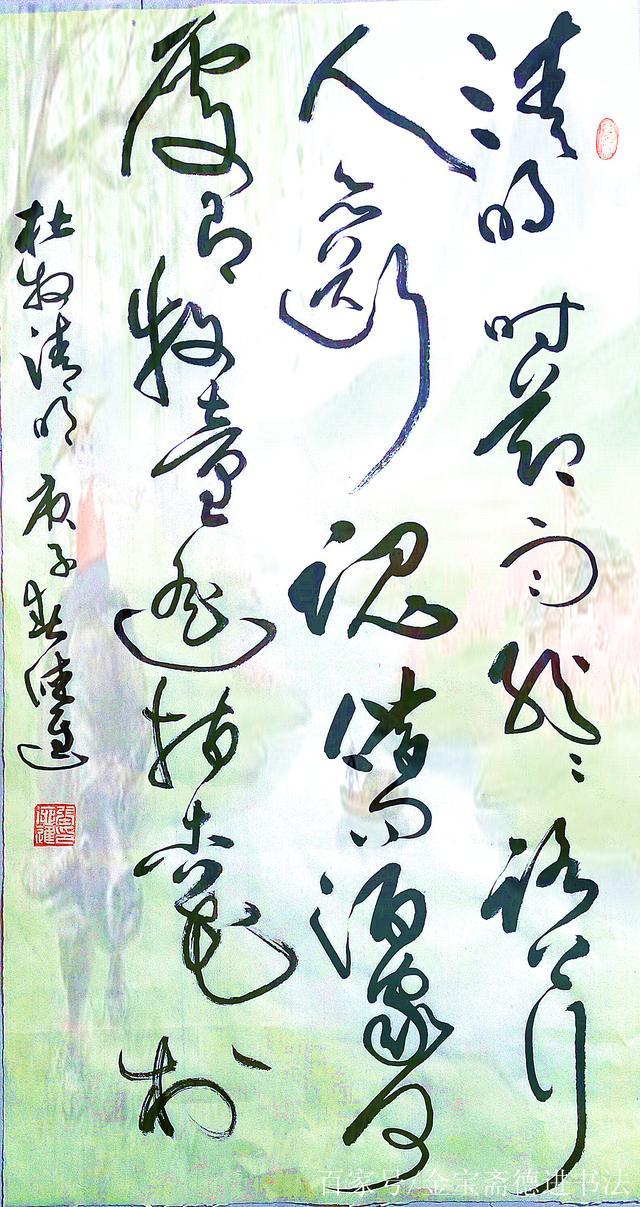 清明时節雨紛紛路上行
人欲斷魂借問酒家何
處有牧童遥指杏花村
杜牧清明 庚子春德進
百家号/金宝斋德进书法